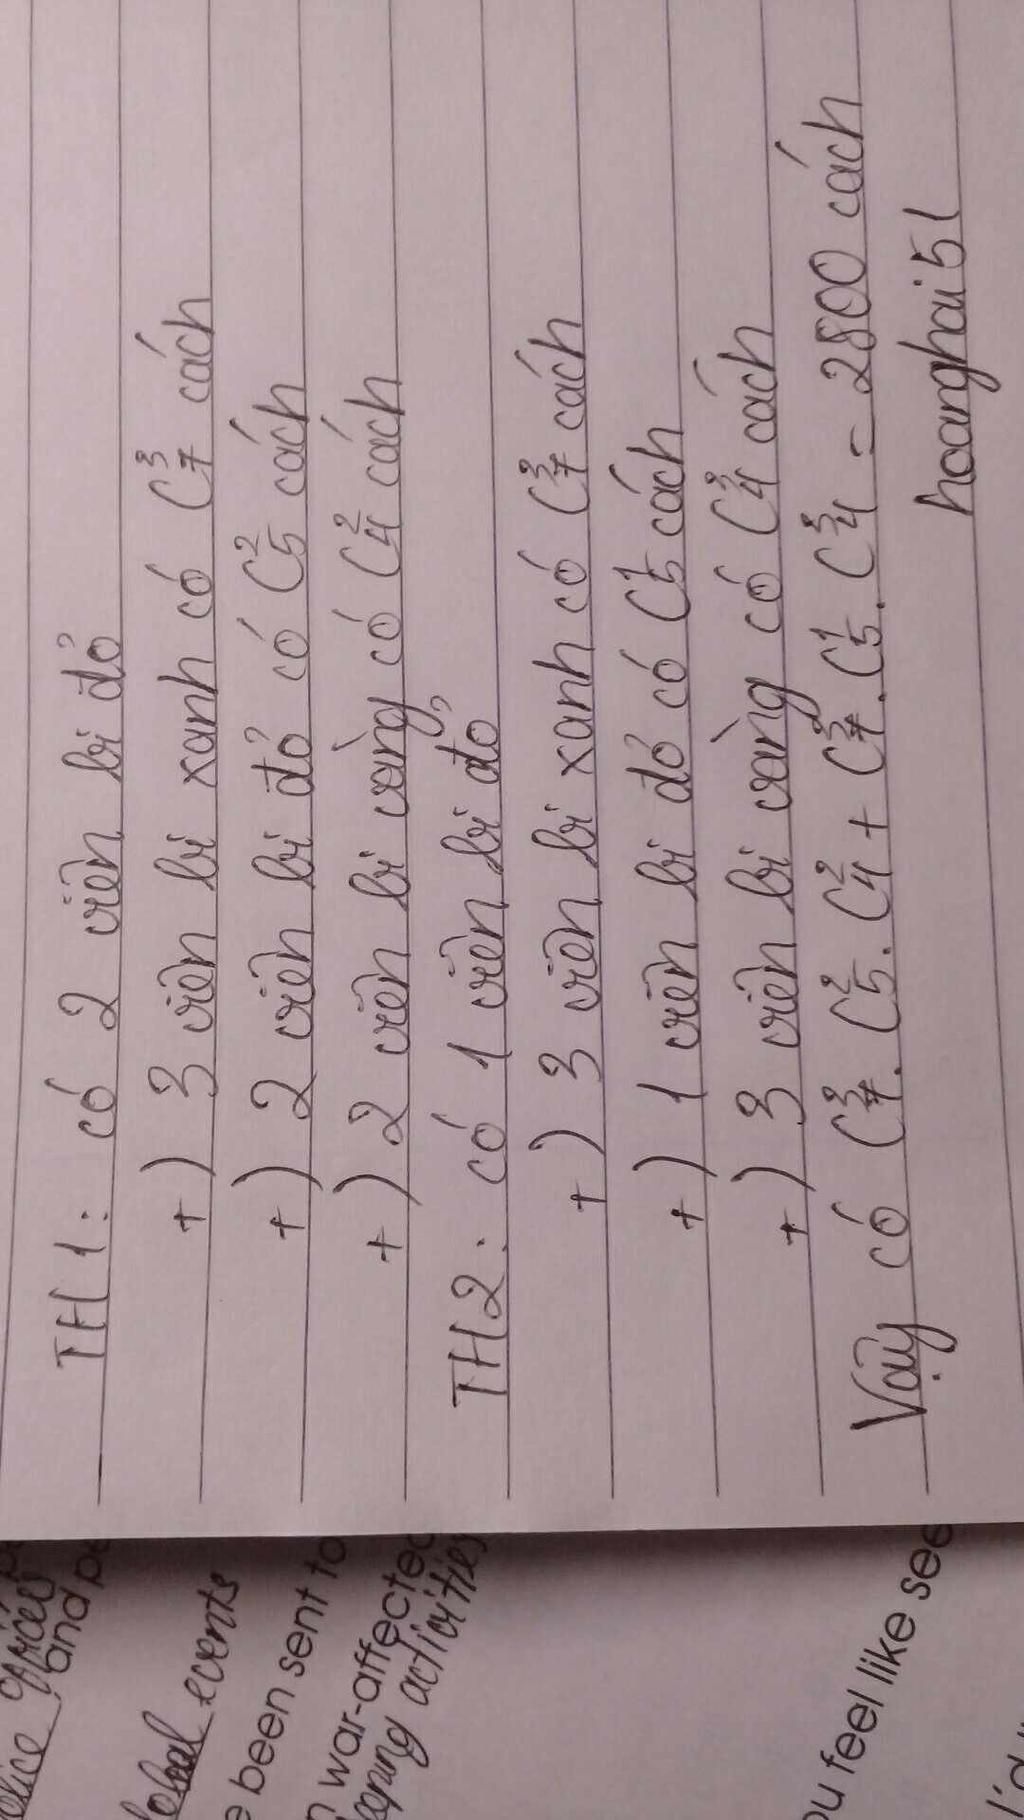 TH1: có 2 viên bi đỏ
+) 3 viên bi xanh có C³₇ cách
+) 2 viên bi đỏ có C²₅ cách
+) 2 viên bi vàng có C²₄ cách
TH2: có 1 viên bi đỏ
+) 3 viên bi xanh có C³₇ cách
+) 1 viên bi đỏ có C¹₅ cách
+) 3 viên bi vàng có C³₄ cách
Vậy có C³₇. C²₅. C²₄ + C³₇. C¹₅. C³₄ = 2800 cách
hoanghai51
and
events
e been sent to
war-affected
activities
ou feel like see